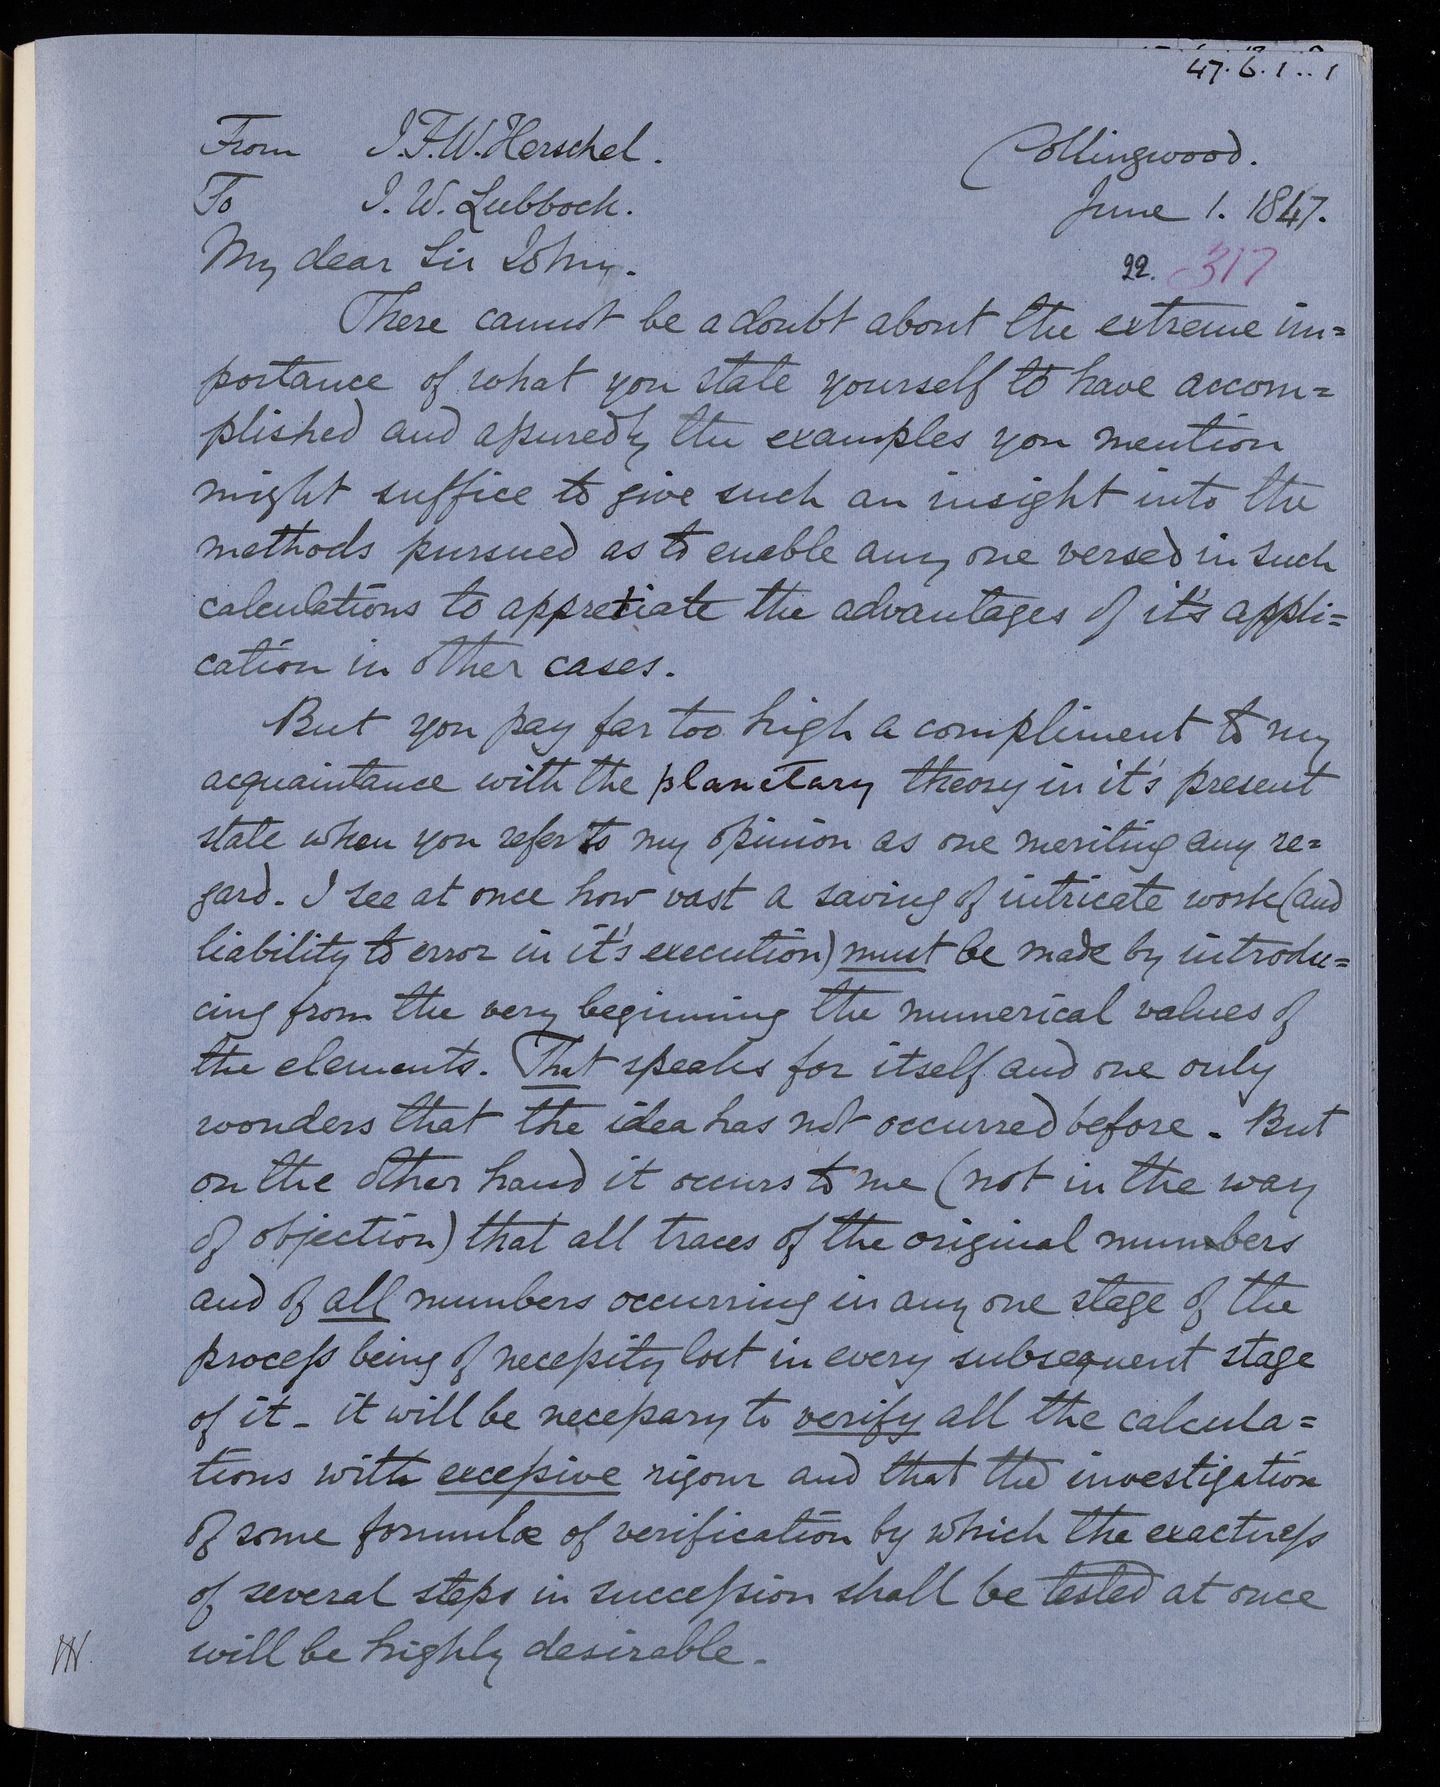 47. 6. 1 .. 1
From J.F.W. Herschel. Collingwood.
To J. W. Lubbock. June 1. 1847.
My dear Sir John. 22. 317
There cannot be a doubt about the extreme im=
portance of what you state yourself to have accom=
plished and aſsuredly the examples you mention
might suffice to give such an insight into the
methods pursued as to enable any one versed in such
calculations to appreciate the advantages of it's appli=
cation in other cases.
But you pay far too high a compliment to my
acquaintance with the planetary theory in it's present
state when you refer to my opinion as one meriting any re=
gard. I see at once how vast a saving of intricate work (and
liability to error in it's execution) must be made by introdu=
cing from the very beginning the numerical values of
the elements. That speaks for itself and one only
wonders that the idea has not occurred before. But
on the other hand it occurs to me (not in the way
of objection) that all traces of the original numbers
and of all numbers occurring in any one stage of the
proceſs being of neceſsity lost in every subsequent stage
of it - it will be neceſsary to verify all the calcula=
tions with exceſsive rigour and that the investigation
of some formulæ of verification by which the exactneſs
of several steps in succeſsion shall be tested at once
will be highly desirable.